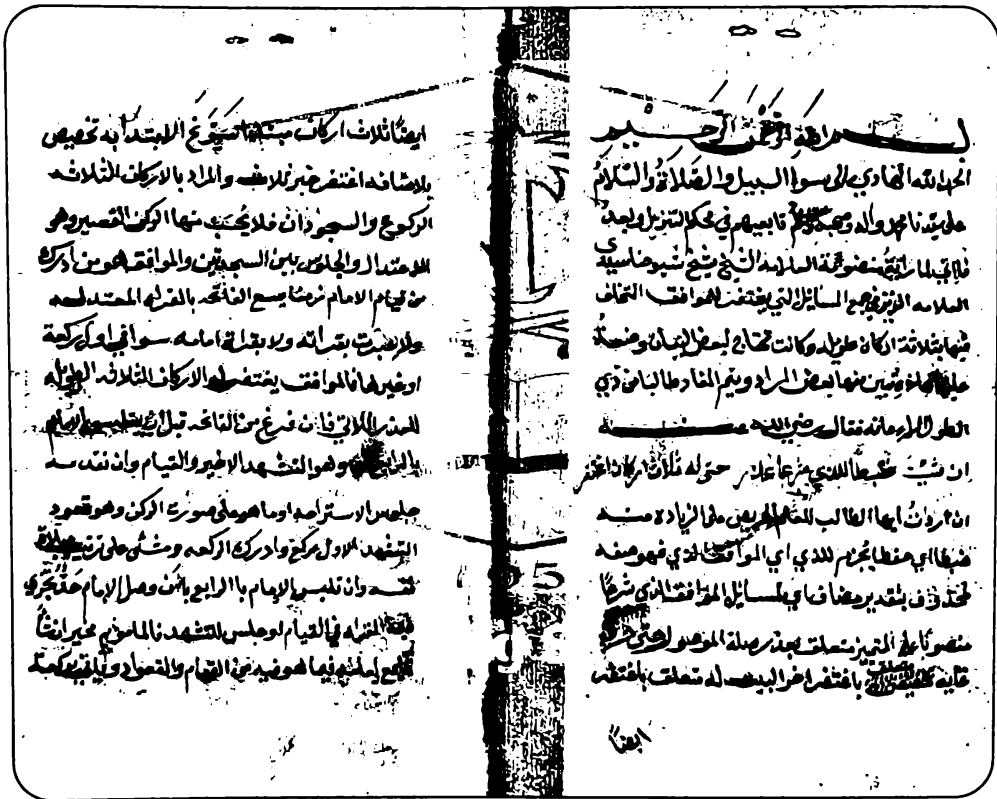 بسم الله الرحمن الرحيم
الحمد لله الهادي الى سوا السبيل والصلاة والسلام
على سيدنا محمد واله وصحبه تابعيهم في محكم التنزيل وبعد
فاني لما رايت منضومة العلامه الشيخ شيخ
العلامه في جمع المسايل التي يغتفر للموافق التخلف
فيها بثلاثة اركان طويله وكانت تحتاج لبعض البيان وضعت
على تبين منها بعض المراد ويتم المفاد طالبا من ذي
الطول فقال رضي الله عنه
ان شئت ضبطا للذي شرعا عذر حتى له ثلاث اركان اغتفر
ان اردت ايها الطالب للعلم الحريص على الزيادة منه
ضبطا اي حفظا بجزم للذي اي الموافق الذي فهو صفه
لمحذوف بتقدير مضاف اي لمسايل الموافق الذي شرعا
منصوبا على التمييز متعلق بعذر صله الموصول حتى
غايه باغتفر اخر البيت له متعلق باغتفر
ايضا
ايضا ثلاث اركان مبتدا سوغ الابتدا به تخصيص
بالاضافه اغتفر خبر ثلاث والمراد بالاركان الثلاثه
الركوع والسجودان فلا يحسب منها الركن القصير وهو
الاعتدال والجلوس بين السجدتين والموافق هو من ادرك
من قيام الامام زمنا يسع الفاتحه بالقراة المعتدله
ولا عبرت بقراته ولا بقراة امامه سوا في اول ركعة
او غيرها فالموافق يغتفر له الاركان الثلاثه الطويله
للعذر الاتي فان فرغ من الفاتحه قبل ان يتلبس الامام
بالرابع وهو التشهد الاخير والقيام وان تقدمه
جلوس الاستراحه او ما هو على صورت الركن وهو قعود
التشهد الاول ركع وادرك الركعه ومشى على ترتيب صلاة
نفسه وان تلبس الامام بالرابع بان وصل الامام حد تجزي
فيه القراه في القيام او جلس للتشهد فالماموم مخير ان شا
تابع امامه فيما هو فيه من القيام والقعود ويات بركعة